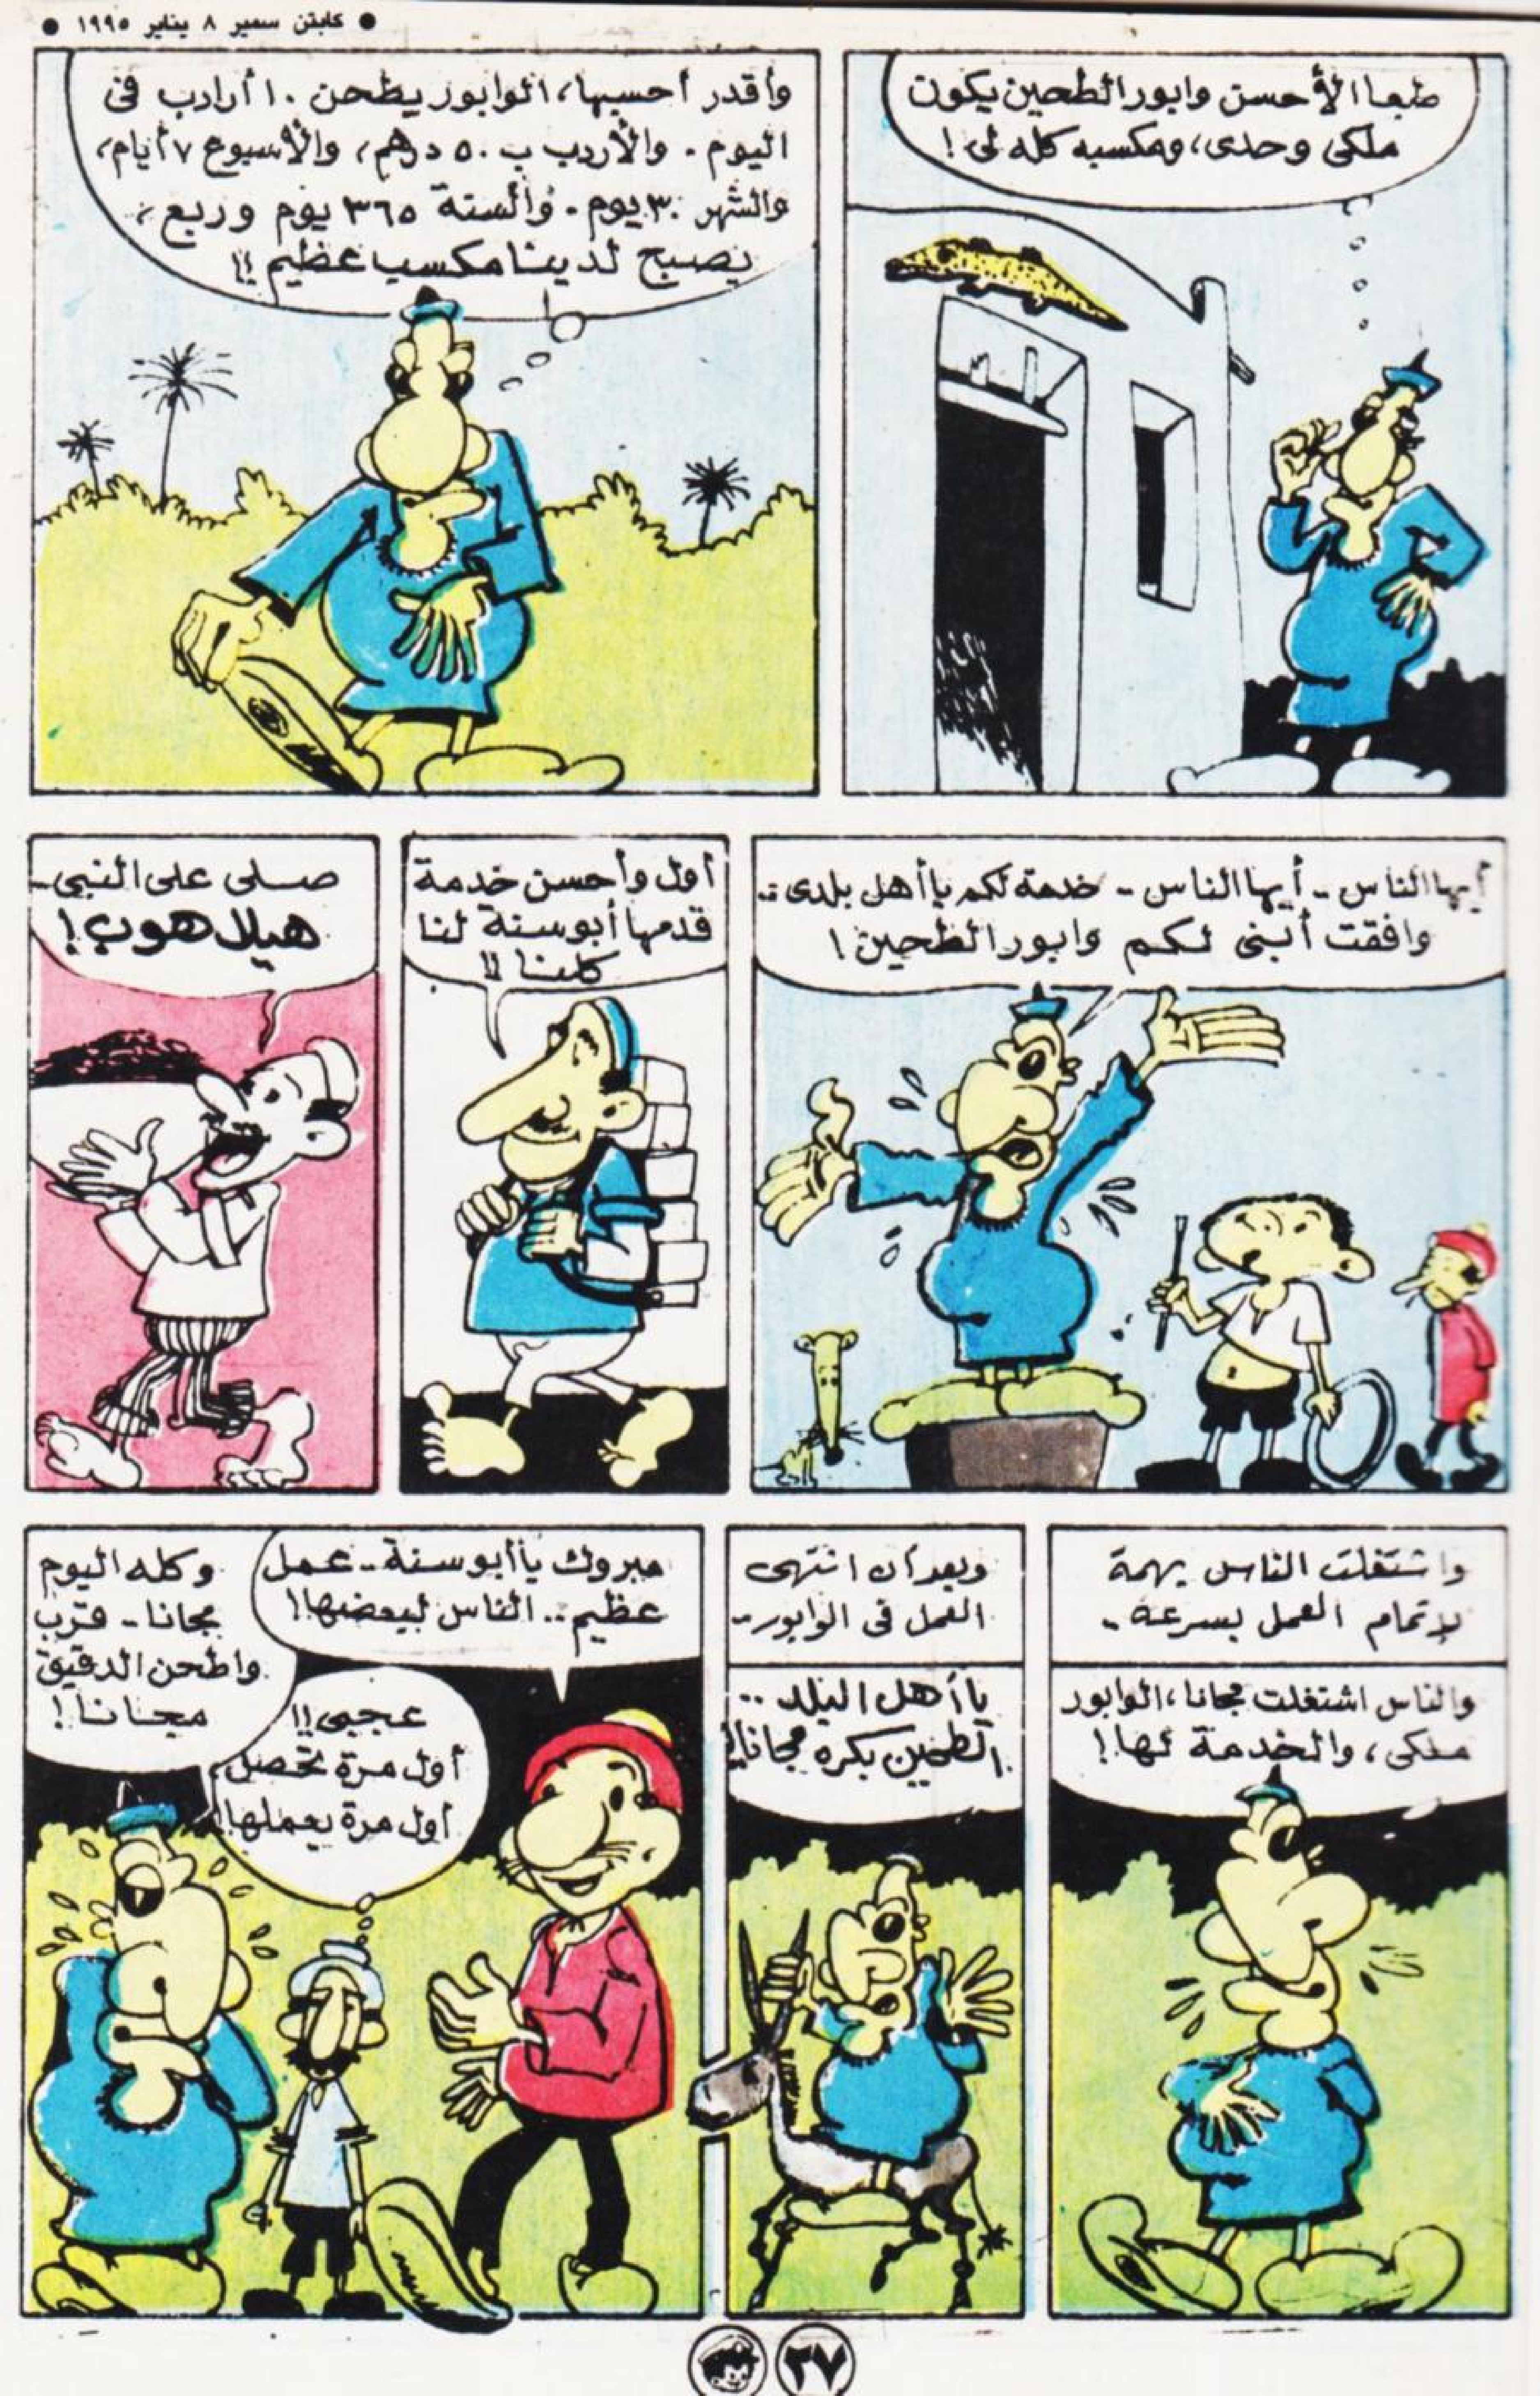 ● كابتن سمير ٨ يناير ١٩٩٥ ●
طبعا الأحسن وابور الطحين يكون
ملكى وحدى، ومكسبه كله لى!
وأقدر أحسبها، الوابور يطحن ١٠ أرادب فى
اليوم. والأردب ب ٥٠ درهم، والأسبوع ٧ أيام،
والشهر ٣٠ يوم. والسنة ٣٦٥ يوم وربع،
يصبح لدينا مكسب عظيم!!
أيها الناس.. أيها الناس.. خدمة لكم يا أهل بلدى..
وافقت أبنى لكم وابور الطحين!
أول وأحسن خدمة
قدمها أبوسنة لنا
كلنا!!
صلى على النبى..
هيلا هوب!
واشتغلت الناس بهمة
لإتمام العمل بسرعة..
والناس اشتغلت مجانا، الوابور
ملكى، والخدمة لها!
وبعد أن انتهى
العمل فى الوابور..
يا أهل البلد..
الطحين بكره مجانا!!
مبروك يا أبوسنة.. عمل
عظيم.. الناس لبعضها!!
وكله اليوم
مجانا.. قرب
واطحن الدقيق
مجانا!
عجبى!!
أول مرة تحصل،
أول مرة يعملها!!
٣٧